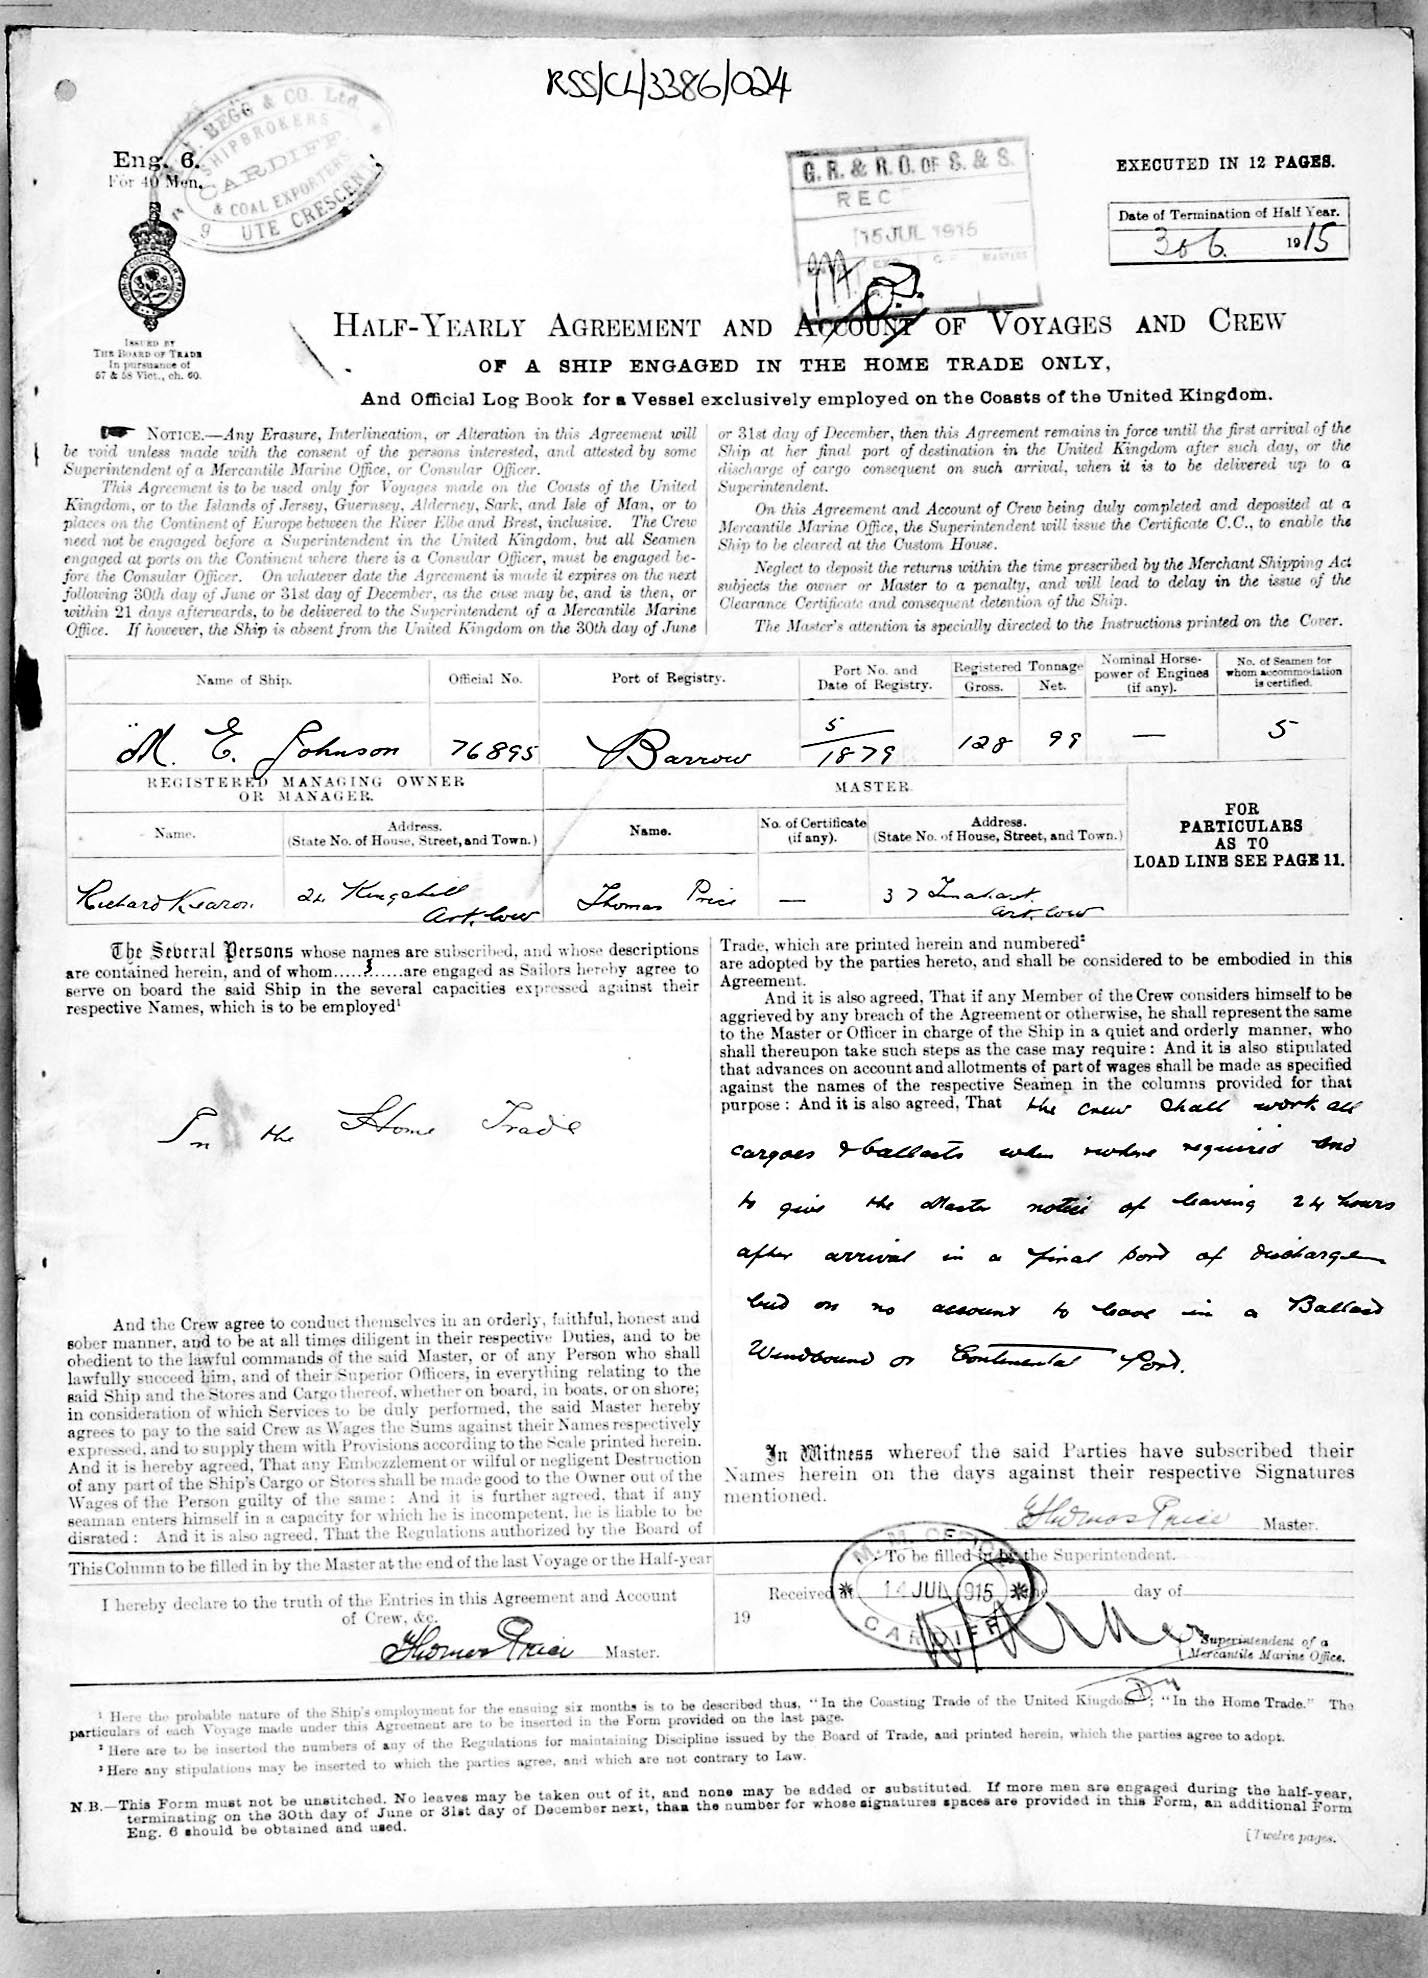 RSS/CL/3386/024
BEGG & CO. Ltd.
SHIPBROKERS
CARDIFF.
& COAL EXPORTERS
9 UTE CRESCENT
Eng. 6.
For 40 Men.
G. R. & R. O. OF S. & S.
REC
15 JUL 1915
MASTERS
EXECUTED IN 12 PAGES.
Date of Termination of Half Year.
30 6. 1915
COUNCIL FOR TRADE
ISSUED BY
THE BOARD OF TRADE
In pursuance of
57 & 58 Vict., ch. 60.
HALF-YEARLY AGREEMENT AND ACCOUNT OF VOYAGES AND CREW
OF A SHIP ENGAGED IN THE HOME TRADE ONLY,
And Official Log Book for a Vessel exclusively employed on the Coasts of the United Kingdom.
NOTICE.—Any Erasure, Interlineation, or Alteration in this Agreement will
be void unless made with the consent of the persons interested, and attested by some
Superintendent of a Mercantile Marine Office, or Consular Officer.
This Agreement is to be used only for Voyages made on the Coasts of the United
Kingdom, or to the Islands of Jersey, Guernsey, Alderney, Sark, and Isle of Man, or to
places on the Continent of Europe between the River Elbe and Brest, inclusive. The Crew
need not be engaged before a Superintendent in the United Kingdom, but all Seamen
engaged at ports on the Continent where there is a Consular Officer, must be engaged be-
fore the Consular Officer. On whatever date the Agreement is made it expires on the next
following 30th day of June or 31st day of December, as the case may be, and is then, or
within 21 days afterwards, to be delivered to the Superintendent of a Mercantile Marine
Office. If however, the Ship is absent from the United Kingdom on the 30th day of June
or 31st day of December, then this Agreement remains in force until the first arrival of the
Ship at her final port of destination in the United Kingdom after such day, or the
discharge of cargo consequent on such arrival, when it is to be delivered up to a
Superintendent.
On this Agreement and Account of Crew being duly completed and deposited at a
Mercantile Marine Office, the Superintendent will issue the Certificate C.C., to enable the
Ship to be cleared at the Custom House.
Neglect to deposit the returns within the time prescribed by the Merchant Shipping Act
subjects the owner or Master to a penalty, and will lead to delay in the issue of the
Clearance Certificate and consequent detention of the Ship.
The Master's attention is specially directed to the Instructions printed on the Cover.
Name of Ship.
Official No.
Port of Registry.
Port No. and
Date of Registry.
Registered Tonnage
Gross. Net.
Nominal Horse-
power of Engines
(if any).
No. of Seamen for
whom accommodation
is certified.
"M. E. Johnson 76895 Barrow 5/1879 128 99 — 5
REGISTERED MANAGING OWNER
OR MANAGER.
MASTER.
Name.
Address.
(State No. of House, Street, and Town.)
Name.
No. of Certificate
(if any).
Address.
(State No. of House, Street, and Town.)
FOR
PARTICULARS
AS TO
LOAD LINE SEE PAGE 11.
Richard Kearon 24 Kingshill Arklow Thomas Price — 37 Arklow
The Several Persons whose names are subscribed, and whose descriptions
are contained herein, and of whom.....3.....are engaged as Sailors hereby agree to
serve on board the said Ship in the several capacities expressed against their
respective Names, which is to be employed¹
In the Home Trade
And the Crew agree to conduct themselves in an orderly, faithful, honest and
sober manner, and to be at all times diligent in their respective Duties, and to be
obedient to the lawful commands of the said Master, or of any Person who shall
lawfully succeed him, and of their Superior Officers, in everything relating to the
said Ship and the Stores and Cargo thereof, whether on board, in boats, or on shore;
in consideration of which Services to be duly performed, the said Master hereby
agrees to pay to the said Crew as Wages the Sums against their Names respectively
expressed, and to supply them with Provisions according to the Scale printed herein.
And it is hereby agreed, That any Embezzlement or wilful or negligent Destruction
of any part of the Ship's Cargo or Stores shall be made good to the Owner out of the
Wages of the Person guilty of the same: And it is further agreed, that if any
seaman enters himself in a capacity for which he is incompetent, he is liable to be
disrated: And it is also agreed, That the Regulations authorized by the Board of
Trade, which are printed herein and numbered²
are adopted by the parties hereto, and shall be considered to be embodied in this
Agreement.
And it is also agreed, That if any Member of the Crew considers himself to be
aggrieved by any breach of the Agreement or otherwise, he shall represent the same
to the Master or Officer in charge of the Ship in a quiet and orderly manner, who
shall thereupon take such steps as the case may require: And it is also stipulated
that advances on account and allotments of part of wages shall be made as specified
against the names of the respective Seamen in the columns provided for that
purpose: And it is also agreed, That the crew shall work all
cargoes & ballasts when & where required and
to give the Master notice of leaving 24 hours
after arrival in a final port of discharge
but on no account to leave in a Ballast
Windbound or Continental Port.
In Witness whereof the said Parties have subscribed their
Names herein on the days against their respective Signatures
mentioned.
Thomas Price Master.
This Column to be filled in by the Master at the end of the last Voyage or the Half-year
I hereby declare to the truth of the Entries in this Agreement and Account
of Crew, &c.
Thomas Price Master.
To be filled in by the Superintendent.
Received at the day of
19
M. M. OFFICE
14 JUL 1915
CARDIFF
Superintendent of a
Mercantile Marine Office.
¹ Here the probable nature of the Ship's employment for the ensuing six months is to be described thus, "In the Coasting Trade of the United Kingdom"; "In the Home Trade." The
particulars of each Voyage made under this Agreement are to be inserted in the Form provided on the last page.
² Here are to be inserted the numbers of any of the Regulations for maintaining Discipline issued by the Board of Trade, and printed herein, which the parties agree to adopt.
³ Here any stipulations may be inserted to which the parties agree, and which are not contrary to Law.
N.B.—This Form must not be unstitched. No leaves may be taken out of it, and none may be added or substituted. If more men are engaged during the half-year,
terminating on the 30th day of June or 31st day of December next, than the number for whose signatures spaces are provided in this Form, an additional Form
Eng. 6 should be obtained and used.
[Twelve pages.